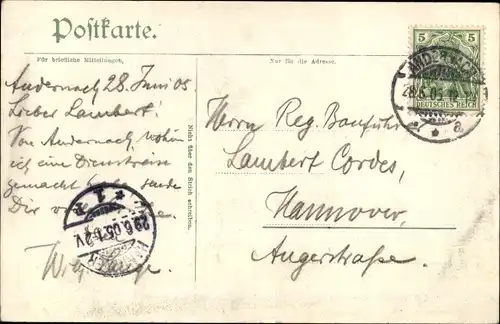 Postkarte.
Für briefliche Mitteilungen.
Nur für die Adresse.
Andernach 28 Juni 05
Lieber Lambert!
Von Andernach, wohin
ich eine Dienstreise
gemacht habe sende
Dir
Nicht über den Strich schreiben.
Herrn Reg. Bauführ
Lambert Cordes,
Hannover,
Angerstraße.
5 5
DEUTSCHES REICH
ANDERNACH
28.6.05
* a
* 1
29.6.05.1-2V